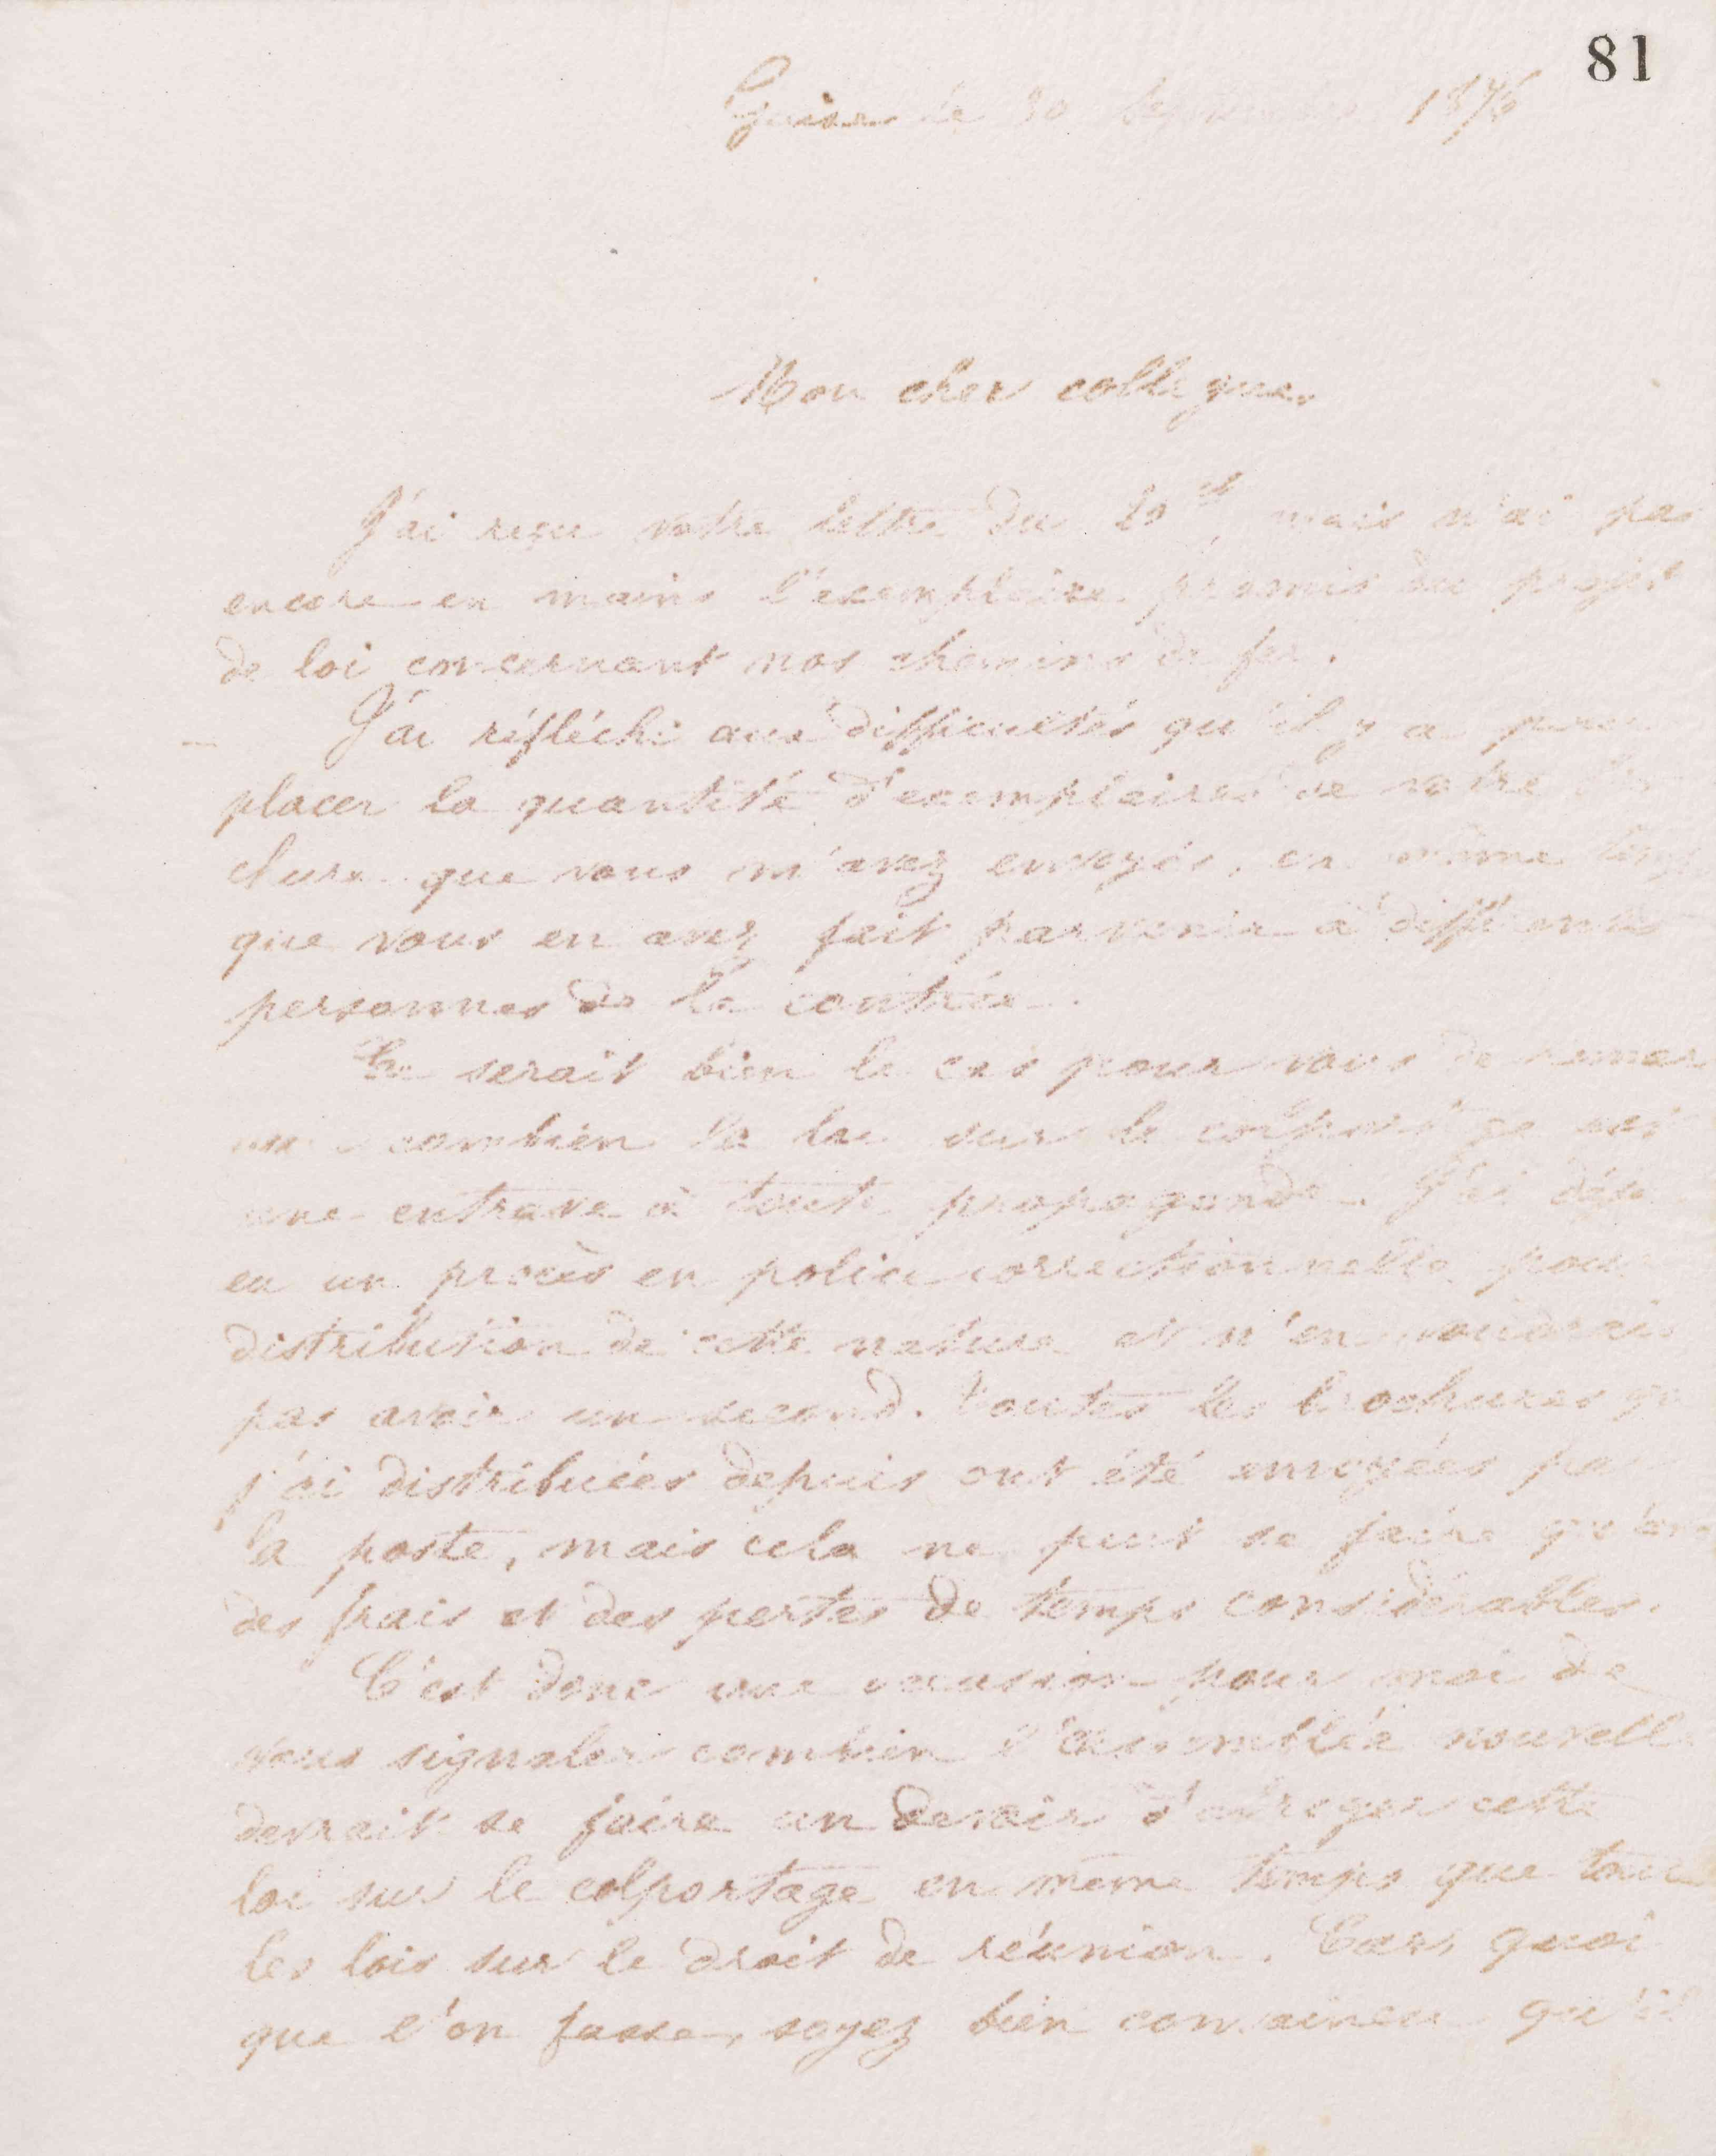 81
Guise le 30 1876
Mon cher collègue,
J'ai reçu votre lettre du mais n'ai pas
encore en mains l'exemplaire promis du projet
de loi concernant nos chemins de fer.
J'ai réfléchi aux difficultés qu'il y a pour
placer la quantité d'exemplaires de votre
chure que vous m'avez envoyés, en même temps
que vous en avez fait parvenir à différentes
personnes de la contrée.
Ce serait bien le cas pour vous de
combien la loi sur le colportage est
une entrave à toute propagande. J'ai déjà
eu un procès en police correctionnelle pour
distribution de cette nature et n'en voudrais
pas avoir un second. Toutes les brochures que
j'ai distribuées depuis ont été envoyées par
la poste, mais cela ne peut se faire qu'avec
des frais et des pertes de temps considérables.
C'est donc une occasion pour moi de
vous signaler combien l'assemblée nouvelle
devrait se faire un devoir d'abroger cette
loi sur le colportage en même temps que toutes
les lois sur le droit de réunion. Car, quoi
que l'on fasse, soyez bien convaincu qu'il